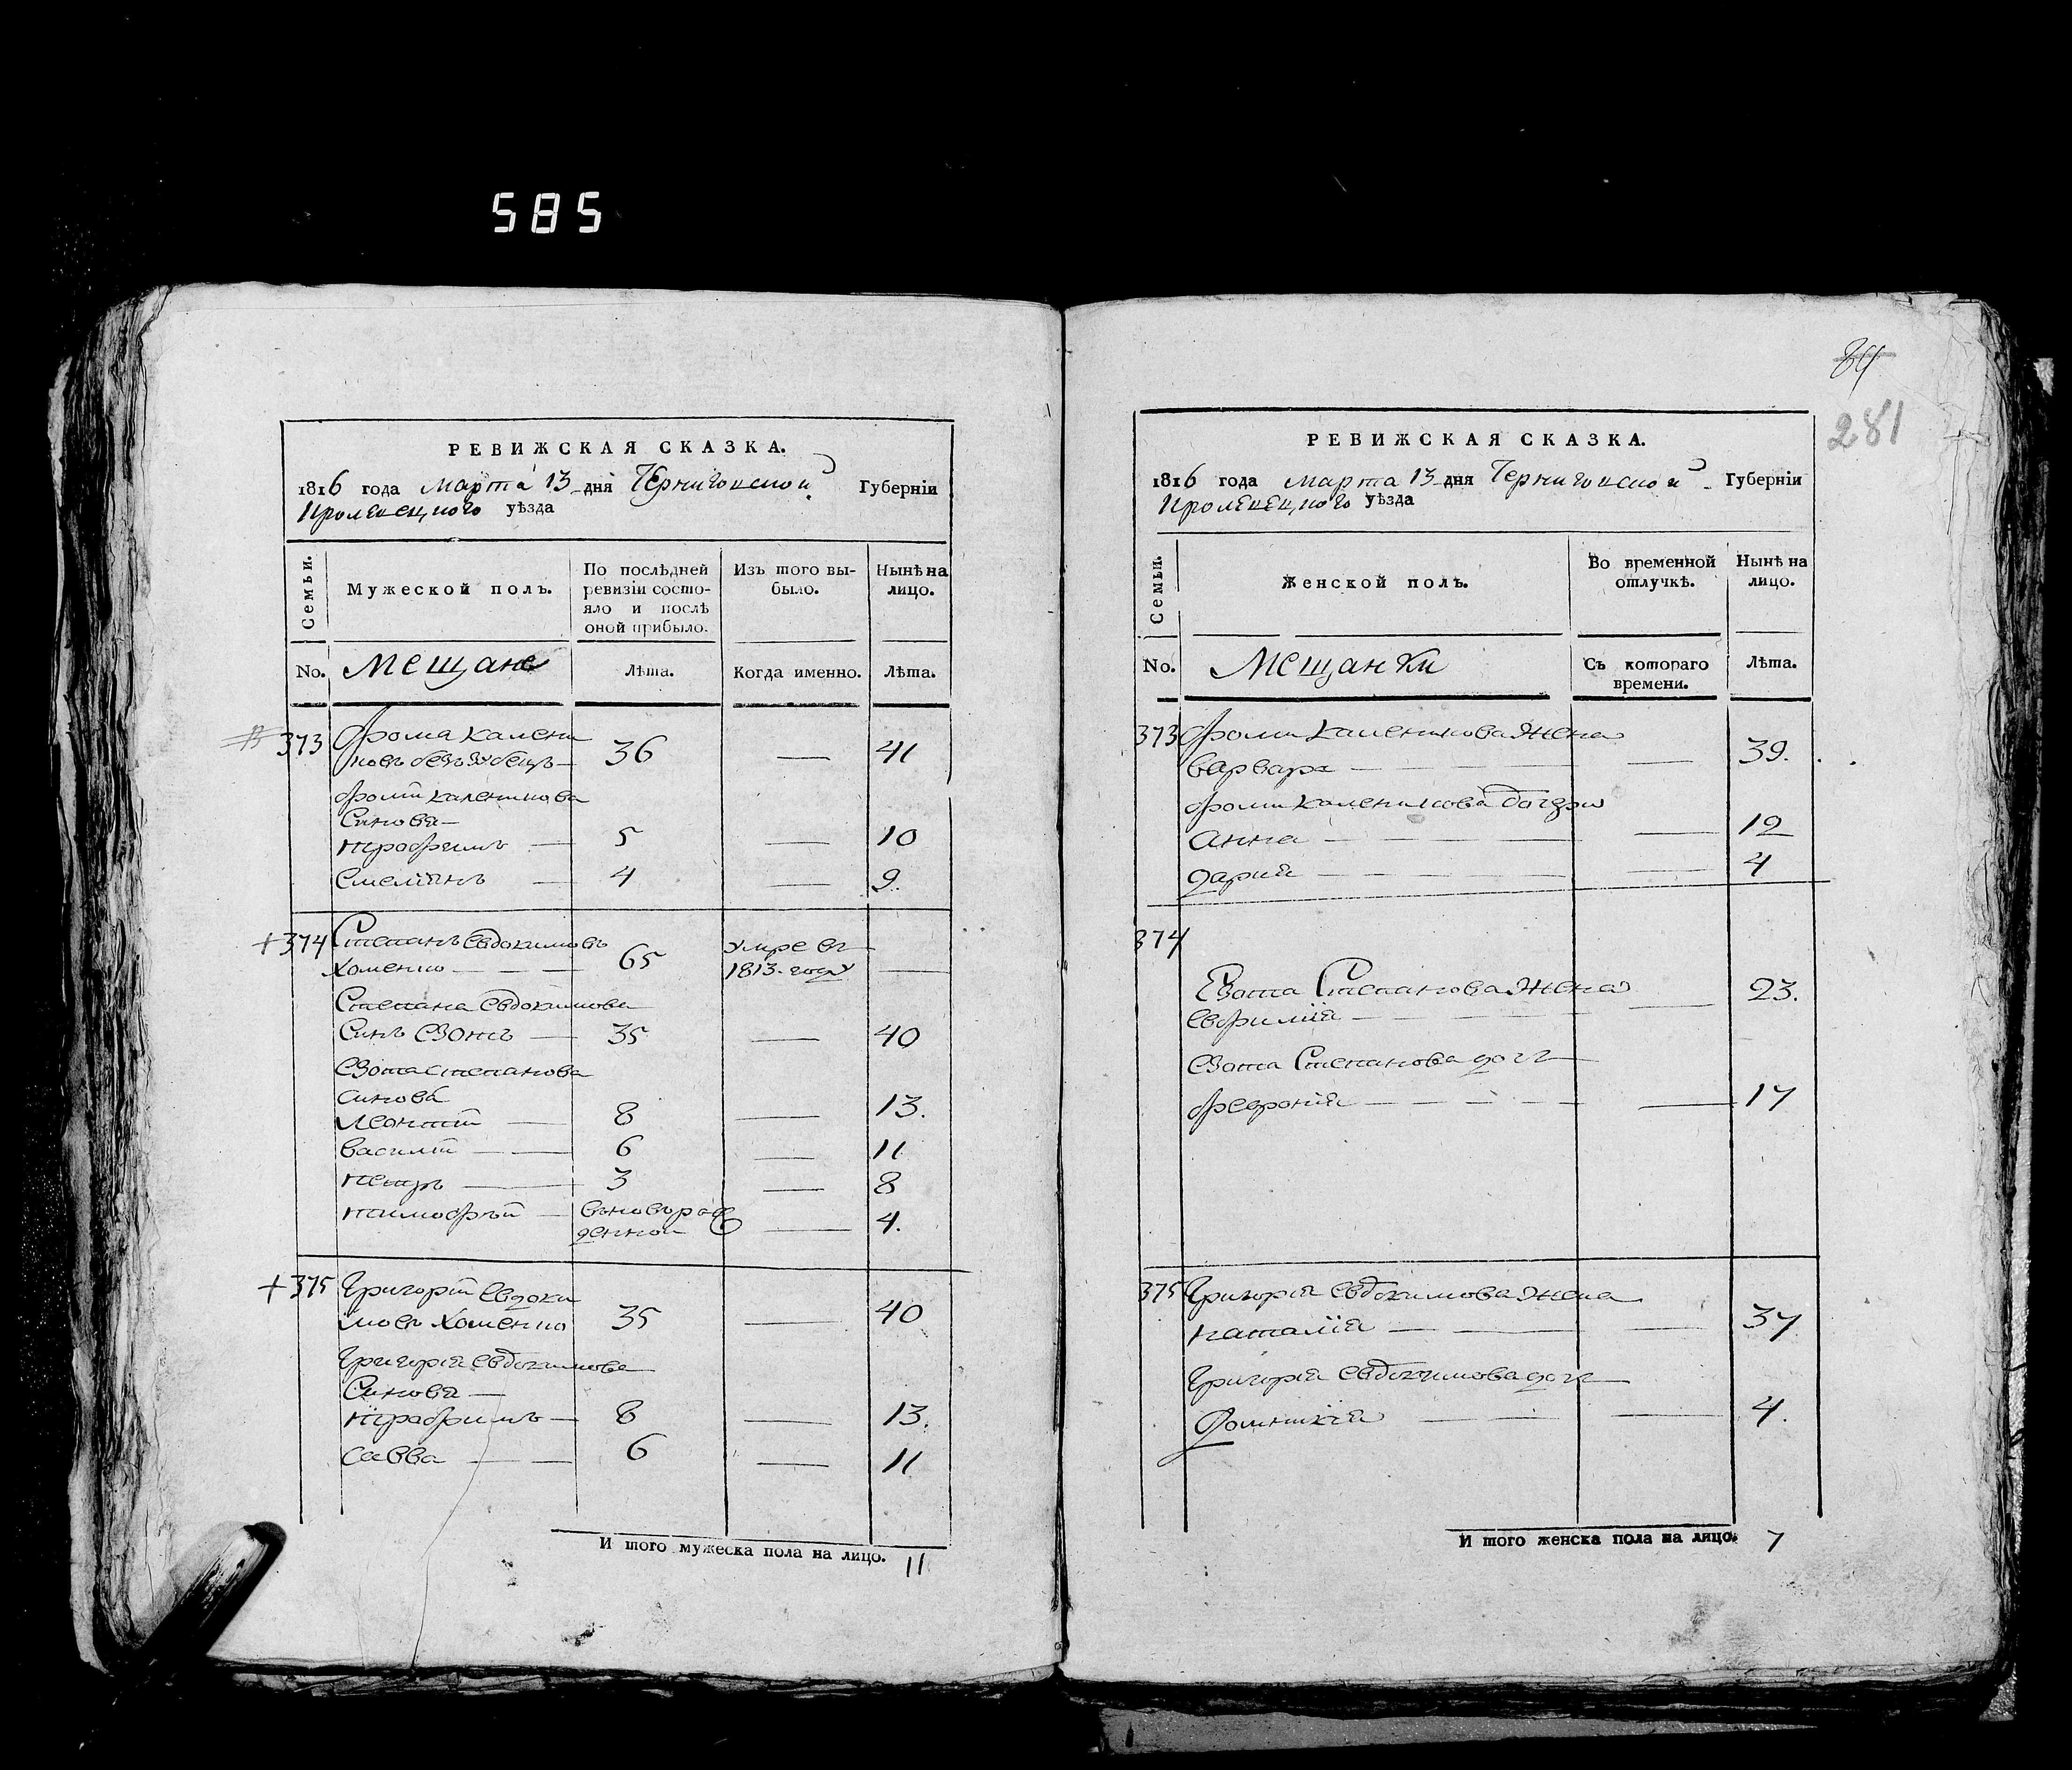 585
РЕВИЖСКАЯ СКАЗКА.
1816 года Марта 13 дня Черниговской Губерніи
Кролевецкого уѣзда
Семьи.
Мужеской полъ.
По послѣдней ревизіи состояло и послѣ оной прибыло.
Изъ того выбыло.
Нынѣ на лицо.
No. Мещане
Лѣта.
Когда именно.
Лѣта.
373 Фома Калени
ковъ 36 — 41
Фоми Каленикова
Синова —
трофимъ — 5 — 10
Емеліянъ — 4 — 9.
+ 374 Степанъ Евдокимовъ
Хоменко — 65 умре въ 1813. году —
Степана Евдокимова
Синъ Езотъ — 35 — 40
Езота степанова
синова
Леонтій — 8 — 13.
василій — 6 — 11
петръ — 3 — 8
тимофѣй — 4.
+ 375 Григорій Евдоки
мовъ Хоменко 35 — 40
Григорія Евдокимова
Синова —
трофимъ — 8 — 13.
савва — 6 — 11
И того мужеска пола на лицо. 11
84
281
РЕВИЖСКАЯ СКАЗКА.
1816 года Марта 13 дня Черниговской Губерніи
Кролевецкого уѣзда
Семьи.
Женской полъ.
Во временной отлучкѣ.
Нынѣ на лицо.
No. Мещанки
Съ котораго времени.
Лѣта.
373 Фоми Каленикова Жена
варвара — 39.
Фоми Каленикова дочери
анна — 12
дария — 4
374
Езота Степанова Жена
Евфимія — 23.
Езота Степанова дочъ
феврония — 17
375 Григорія Евдокимова Жена
наталія — 37
Григорія Евдокимова дочъ
Домникія — 4.
И того женска пола на лицо. 7